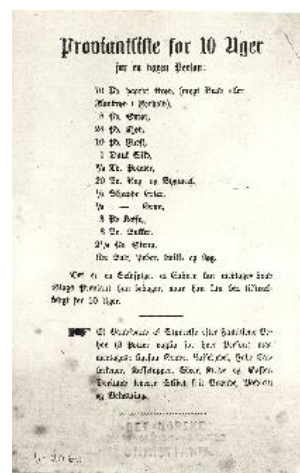 Proviantliste for 10 Uger
for en voxen Person.
70 Pd. hærdet Brød, (mygt Brød eller
Fladbrød i Forhold),
8 Pd. Smør,
24 Pd. Kjød,
10 Pd. Flesk,
1 Dunk Sild,
3/8 Td. Poteter,
20 Pd. Rug- og Bygmeel,
1/2 Skjeppe Erter,
1/2 — Gryn,
3 Pd. Kaffe,
3 Pd. Sukker,
2 1/2 Pd. Sirup,
Noget Salt, Peber, Eddik og Løg.
Det er en Selvfølge, at Enhver kan medtage hvad
Slags Proviant han behager, naar han kun har tilstræk-
keligt for 10 Uger.
Et Vandfad af Størrelse efter Familiens Be-
hov (3 Potter daglig for hver Person) maa
medtages; ligesaa Gryde, Kaffekjedel,
Kaffekopper, Skeer, Knive og Gafler.
Derimod leverer Skibet frit Brænde,
og Belysning.
DET NORSKE